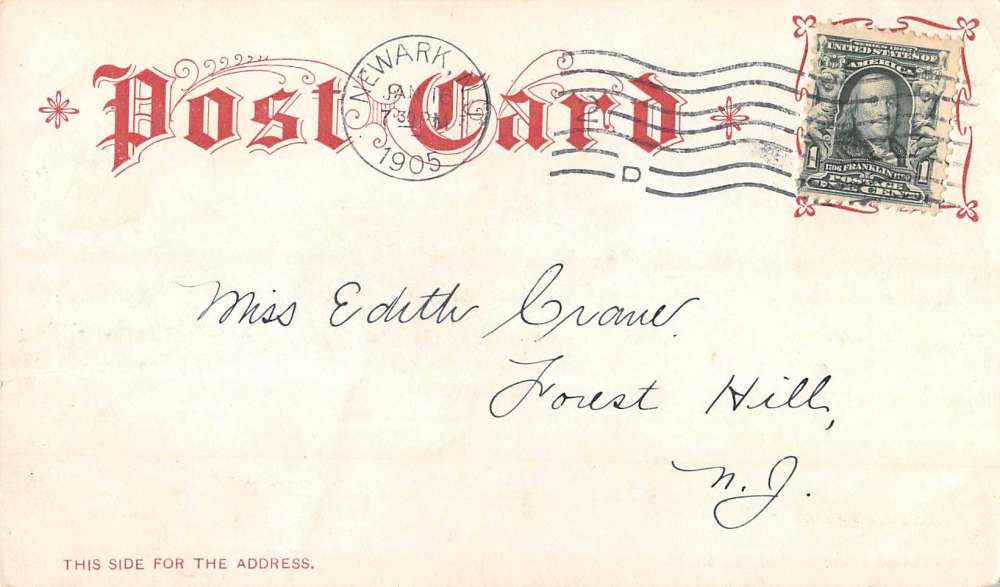 Post Card
NEWARK, N.J.
JAN 16
7-30 PM
1905
D
SERIES 1902
UNITED STATES OF
AMERICA
1706 FRANKLIN 1790
1 1
POSTAGE
ONE CENT
Miss Edith Crane.
Forest Hill,
N. J.
THIS SIDE FOR THE ADDRESS.